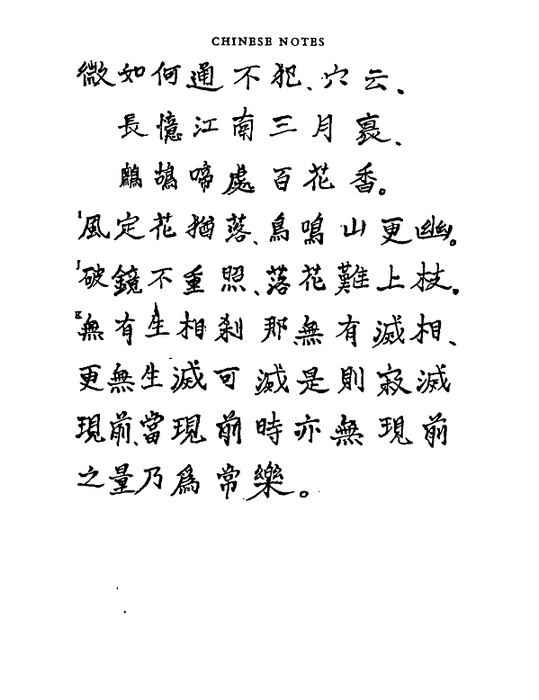 CHINESE NOTES
微如何通不犯、穴云、
長憶江南三月裏、
鷓鴣啼處百花香。
I風定花猶落、鳥鳴山更幽。
J破鏡不重照、落花難上枝。
K無有生相刹那無有滅相、
更無生滅可滅是則寂滅
現前、當現前時亦無現前
之量乃爲常樂。